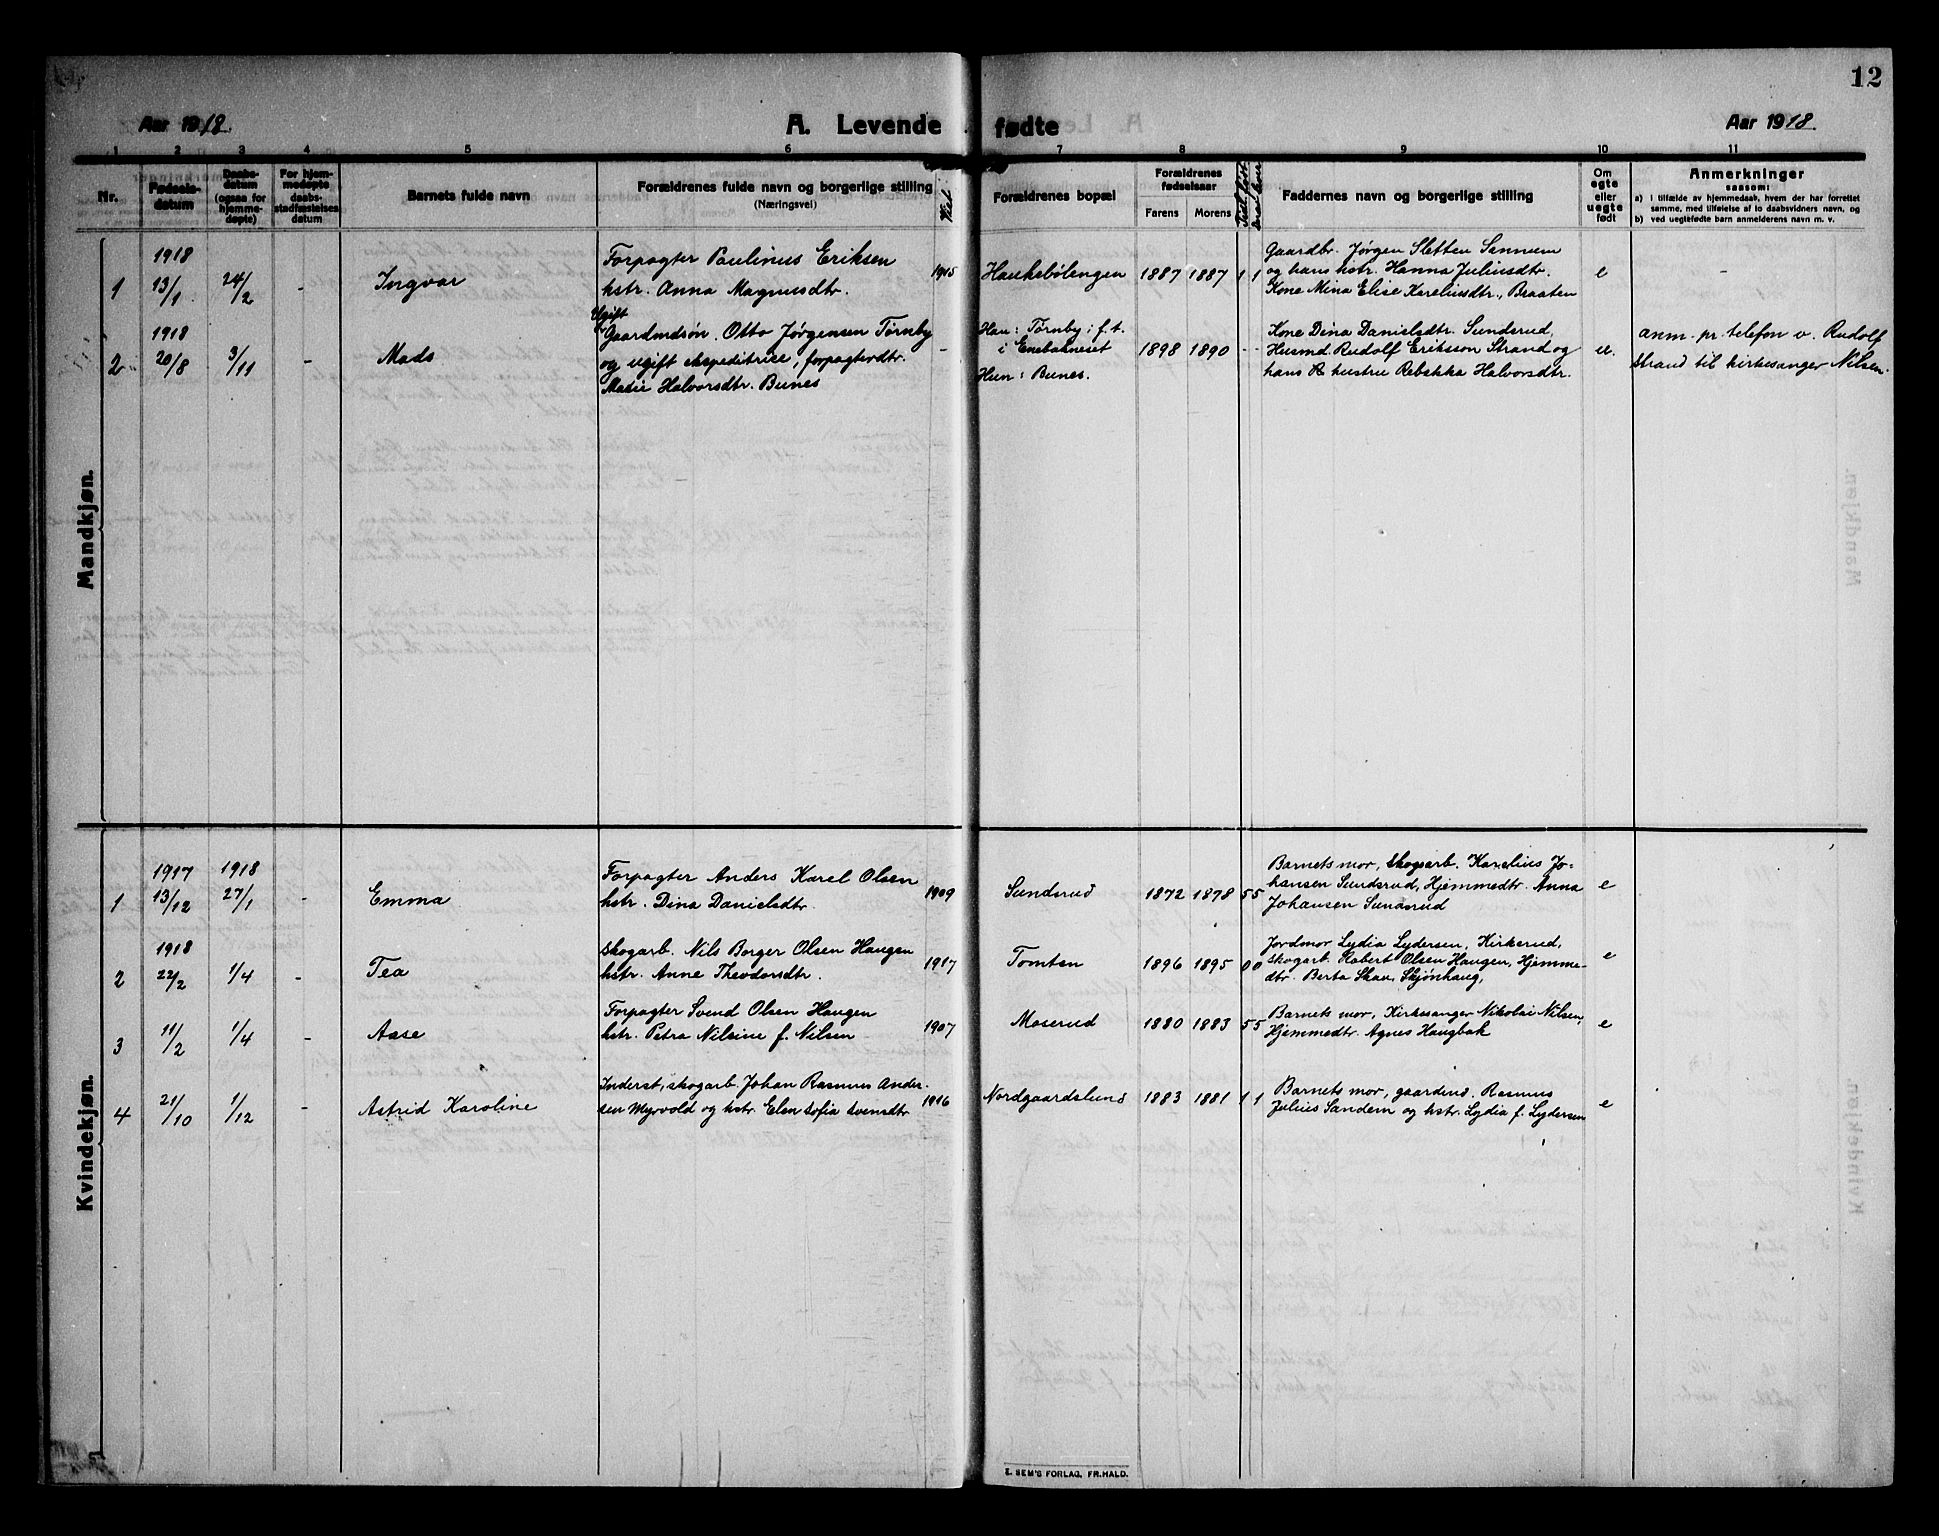 12
Aar 1918.
A. Levende fødte
Aar 1918.
1 2 3 4 5 6 7 8 9 10 11
Nr.
Fødsels-
datum
Daabs-
datum
(ogsaa for
hjemme-
døpte)
For hjem-
medøpte
daabs-
stadfæstelses
datum
Barnets fulde navn
Forældrenes fulde navn og borgerlige stilling
(Næringsvei)
Viet
Forældrenes bopæl
Forældrenes
fødselsaar
Farens Morens
Faddernes navn og borgerlige stilling
Om
egte
eller
uegte
født
Anmerkninger
saasom:
a) i tilfælde av hjemmedaab, hvem der har forrettet
samme, med tilføielse af to daabsvidners navn, og
b) ved uegtefødte barn anmelderens navn m. v.
Mandkjøn.
1
1918
13/1
24/2
-
Ingvar
Forpagter Paulinus Eriksen
hstr. Anna Magnusdtr.
1915
Haukebølengen
1887 1887 1 1
Gaardbr. Jørgen Sletten Sannem
og hans hstr. Hanna Juliusdtr.
Kone Mina Elise Kareliusdtr., Braaten
e
-
2
1918
20/8
3/11
-
Mads
Ugift
Gaardmdsøn. Otto Jørgensen Tørnby
og ugift ekspeditrice, forpagterdtr.
Marie Halvorsdtr. Bunes
-
Han: Tørnby; f. t.
i Enebakneset
Hun: Bunes.
1898 1890 - -
Kone Dina Danielsdtr. Sundsrud,
Husmd. Rudolf Eriksson Strand og
hans hustru Rebekka Halvorsdtr.
u.
anm. pr. telefon v. Rudolf
Strand til kirkesanger Nilsen.
Kvindekjøn.
1
1917
13/12
1918
27/1
-
Emma
Forpagter Anders Karel Olsen
hstr. Dina Danielsdtr.
1909
Sundsrud
1872 1878 5 5
Barnets mor, skogsarb. Karelius Jo-
hansen Sundsrud, Hjemmedtr. Anna
Johansen Sundsrud
e
2
1918
22/2
1/4
-
Tea
skogarb. Nils Borger Olsen Haugen
hstr. Anne Theodorsdtr.
1917
Tomten
1896 1895 0 0
Jordmor Lydia Lydersen, Kirkerud,
skogarb. Robert Olsen Haugen, Hjemme-
dtr. Berta Skau, Skjønhaug,
e
3
11/2
1/4
-
Aase
Forpagter Svend Olsen Haugen
hstr. Petra Nilsine f. Nilsen
1907
Moserud
1880 1883 5 5
Barnets mor, Kirkesanger Nikolai Nilsen,
Hjemmedtr. Agnes Haugbak
e
4
21/10
1/12
Astrid Karoline
Inderst, skogarb. Johan Rasmus Ander-
sen Myrvold og hstr. Elen Sofia Svensdtr
1916
Nordgaardslund
1883 1881 1 1
Barnets mor, gaardmd. Rasmus
Julius Sandem og hstr. Lydia f. Lydersen
e
E. SEM'S FORLAG, FR.HALD.